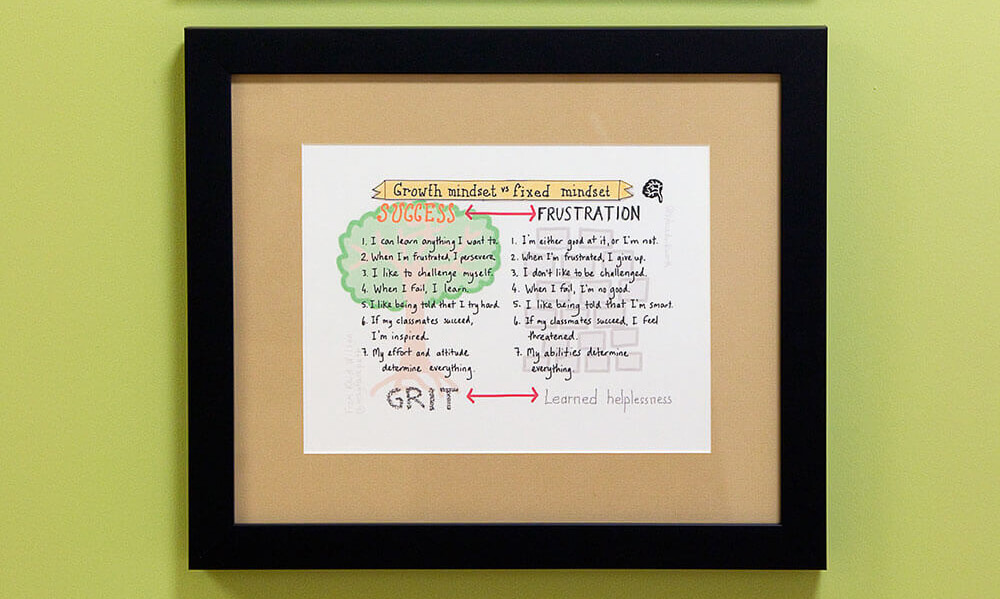 Growth mindset vs fixed mindset
SUCCESS FRUSTRATION
1. I can learn anything I want to.
2. When I'm frustrated, I persevere.
3. I like to challenge myself.
4. When I fail, I learn.
5. I like being told that I try hard.
6. If my classmates succeed,
I'm inspired.
7. My effort and attitude
determine everything.
1. I'm either good at it, or I'm not.
2. When I'm frustrated, I give up.
3. I don't like to be challenged.
4. When I fail, I'm no good.
5. I like being told that I'm smart.
6. If my classmates succeed, I feel
threatened.
7. My abilities determine
everything.
GRIT Learned helplessness